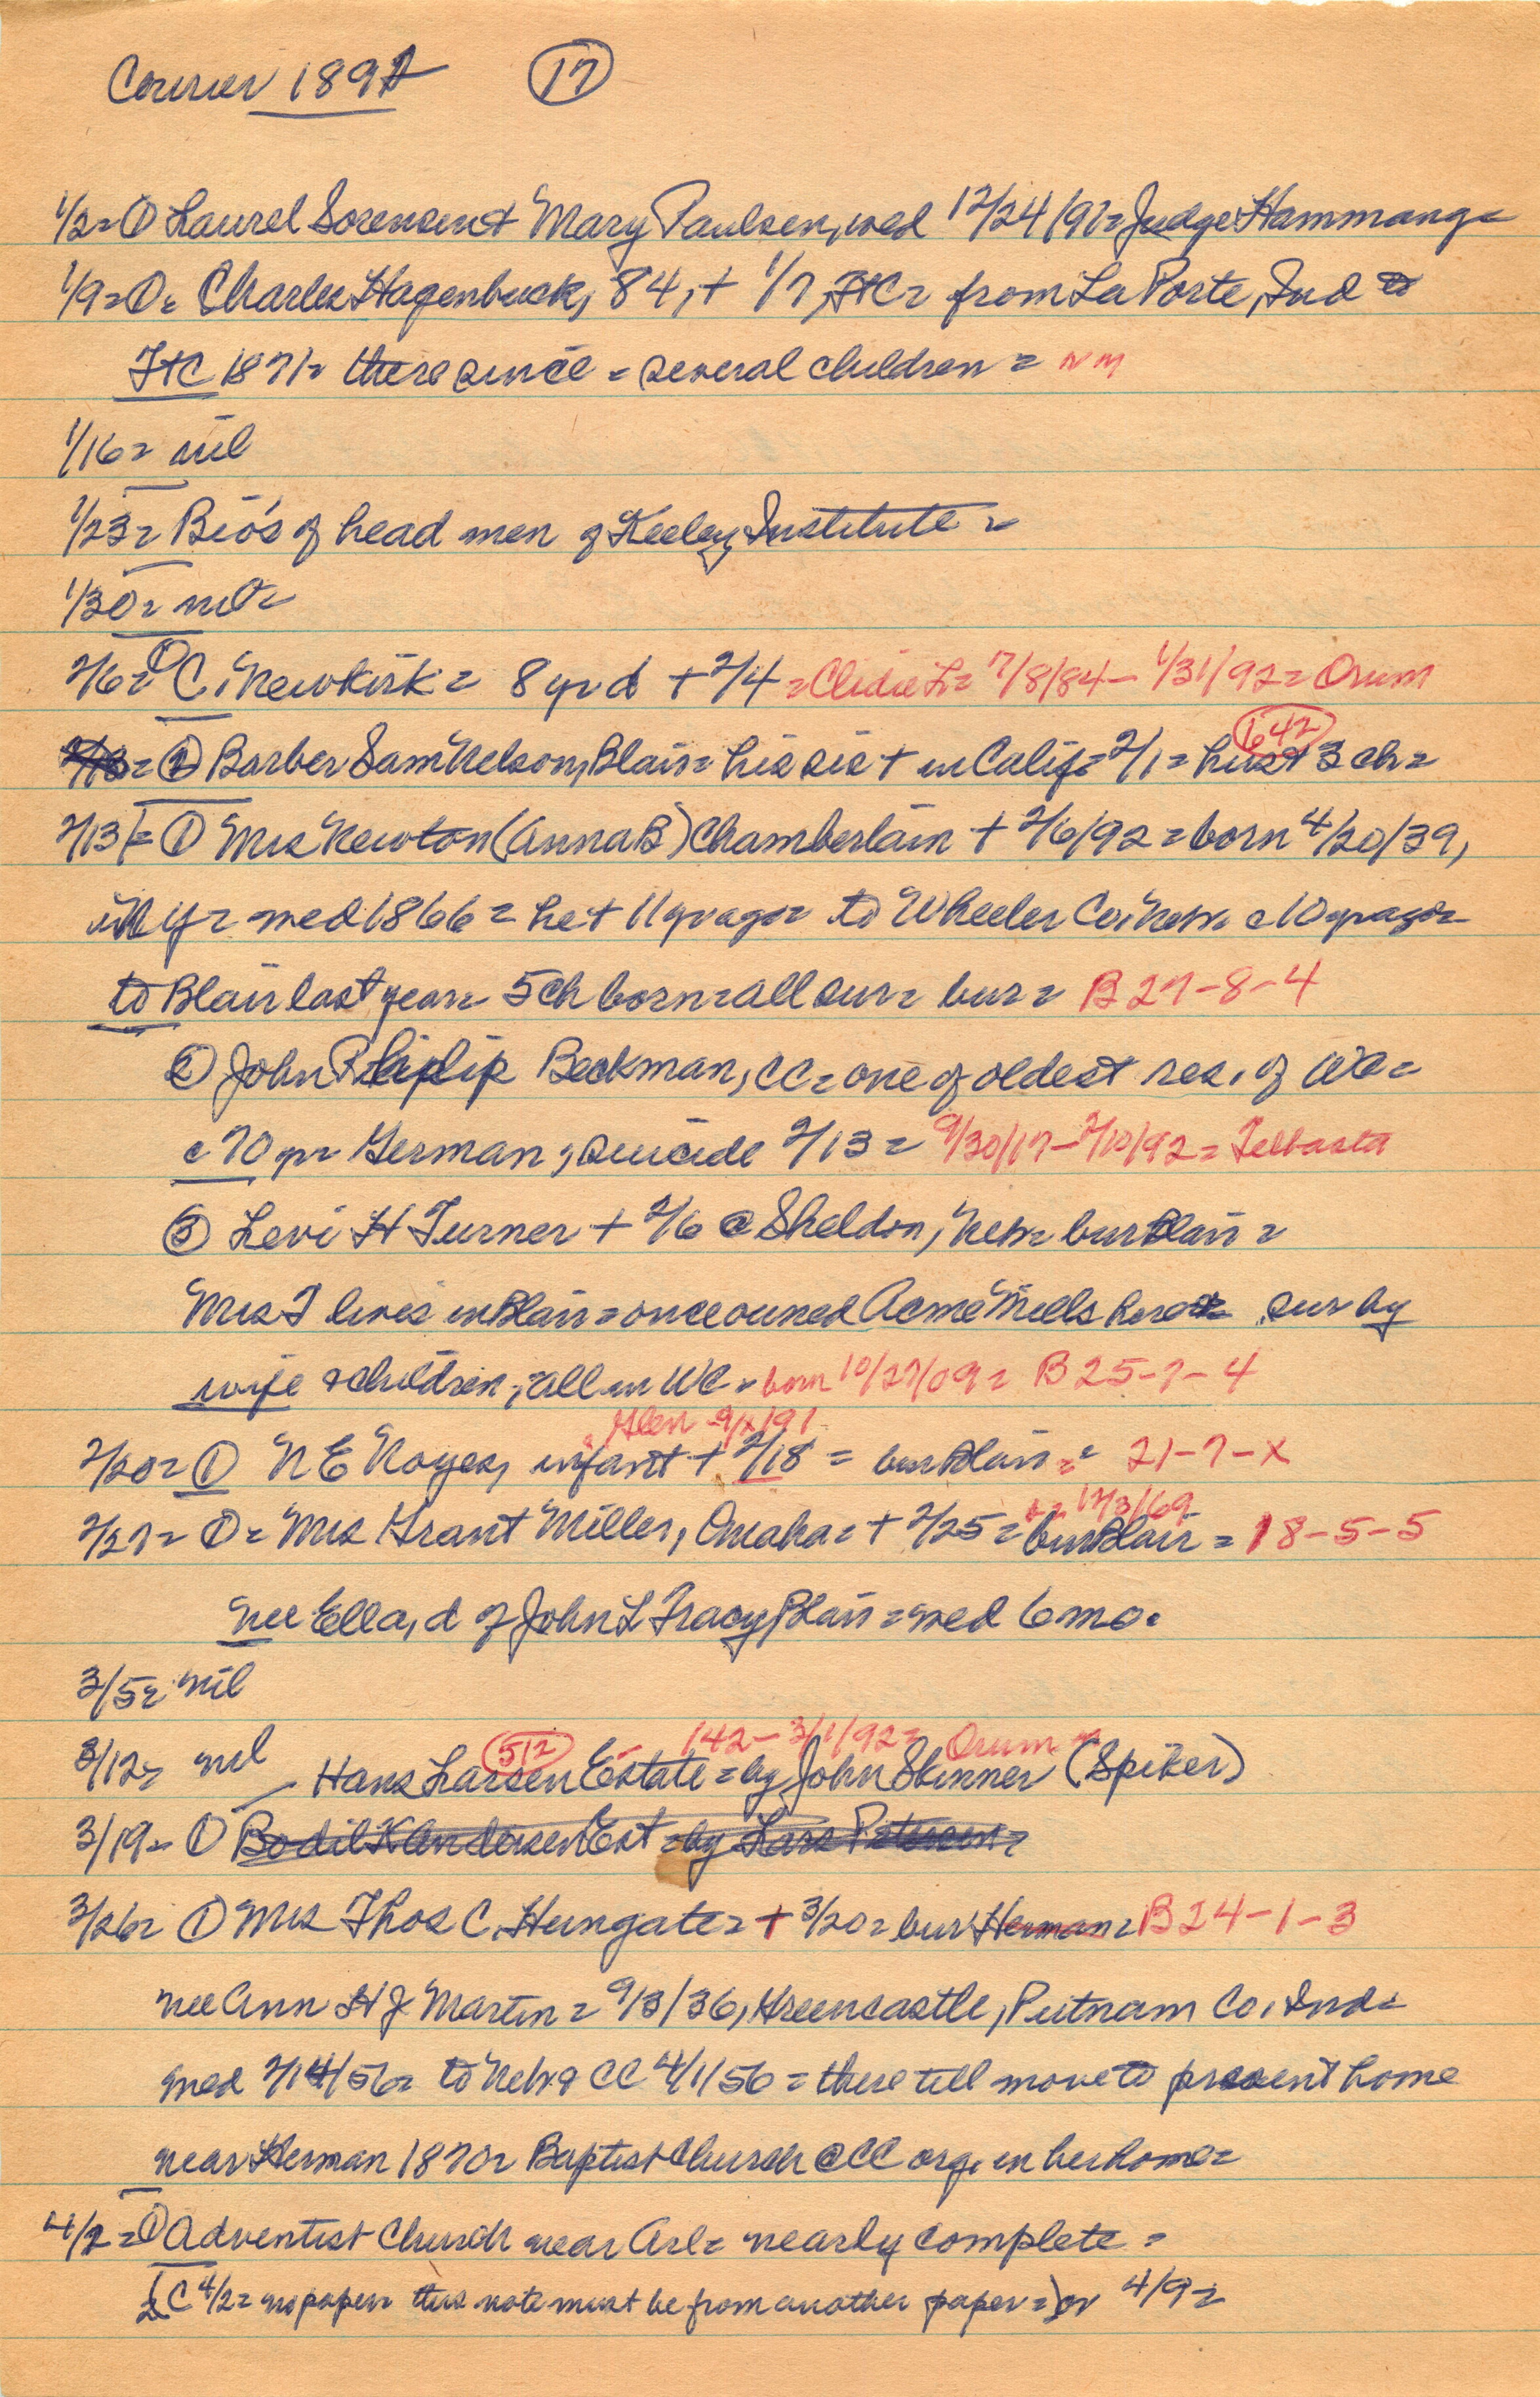 Courier 1892 (17)
1/2 = ① Laurel Sorensen + Mary Paulsen, wed 12/24/91 = Judge Hammang =
1/9 = ① = Charles Hagenbuck, 84, + 1/7, FtC = from La Porte, Ind to
FtC 1871 = there since = several children = NM
1/16 = nil
1/23 = Bio's of head men of Keeley Institute =
1/30 = nil =
2/6 = ① C. Newkirk = 8 yr d + 2/4 = L = 7/8/84 – 1/31/92 = Orum
642
② Barber Sam Nelson, Blair = his sis + in Calif = 2/1 = hus + 3 ch =
2/13 = ① Mrs Newton (Anna B) Chamberlain + 2/6/92 = born 4/20/39,
in NY = med 1866 = he + 11 yr ago = to Wheeler Co, Nebr = c 10 yr ago =
to Blair last year = 5 ch born = all sur = bur = B 27-8-4
② John Phiplip Beckman, CC = one of oldest res. of WC =
c 70 yr = German, suicide 2/13 = 9/30/17 – 2/10/92 = Telbasta
③ Levi H Turner + 2/6 @ Sheldon, Nebr = bur Blair =
Mrs T lives in Blair = once owned Acme Mills here = sur by
wife & children, all in WC = born 10/27/09 = B 25-7-4
Glen 9/x/91
2/20 = ① N E Noyes, infant + 2/18 = bur Blair = = 21-7-X
b = 12/3/69
2/27 = ① = Mrs Grant Miller, Omaha = + 2/25 = bur Blair = 18-5-5
nee Ella, d of John L Tracy, Blair = med 6 mo.
3/5 = nil
512 – 142 – 3/1/92 = Orum
3/12 = nil Hans Larsen Estate = by John Skinner (Spiker)
3/19 = ① Bodil K Andersen Est = by Lars Petersen =
3/26 = ① Mrs Thos C. Hungate = + 3/20 = bur Herman = B 24-1-3
nee Ann H J Martin = 9/3/36, Greencastle, Putnam Co, Ind =
med 2/14/56 = to Nebr & CC 4/1/56 = there till move to present home
near Herman 1870 = Baptist Church @ CC org. in her home =
4/2 = ① Adventist Church near Arl = nearly complete =
C 4/2 = no paper = this note must be from another paper =) or 4/9 =